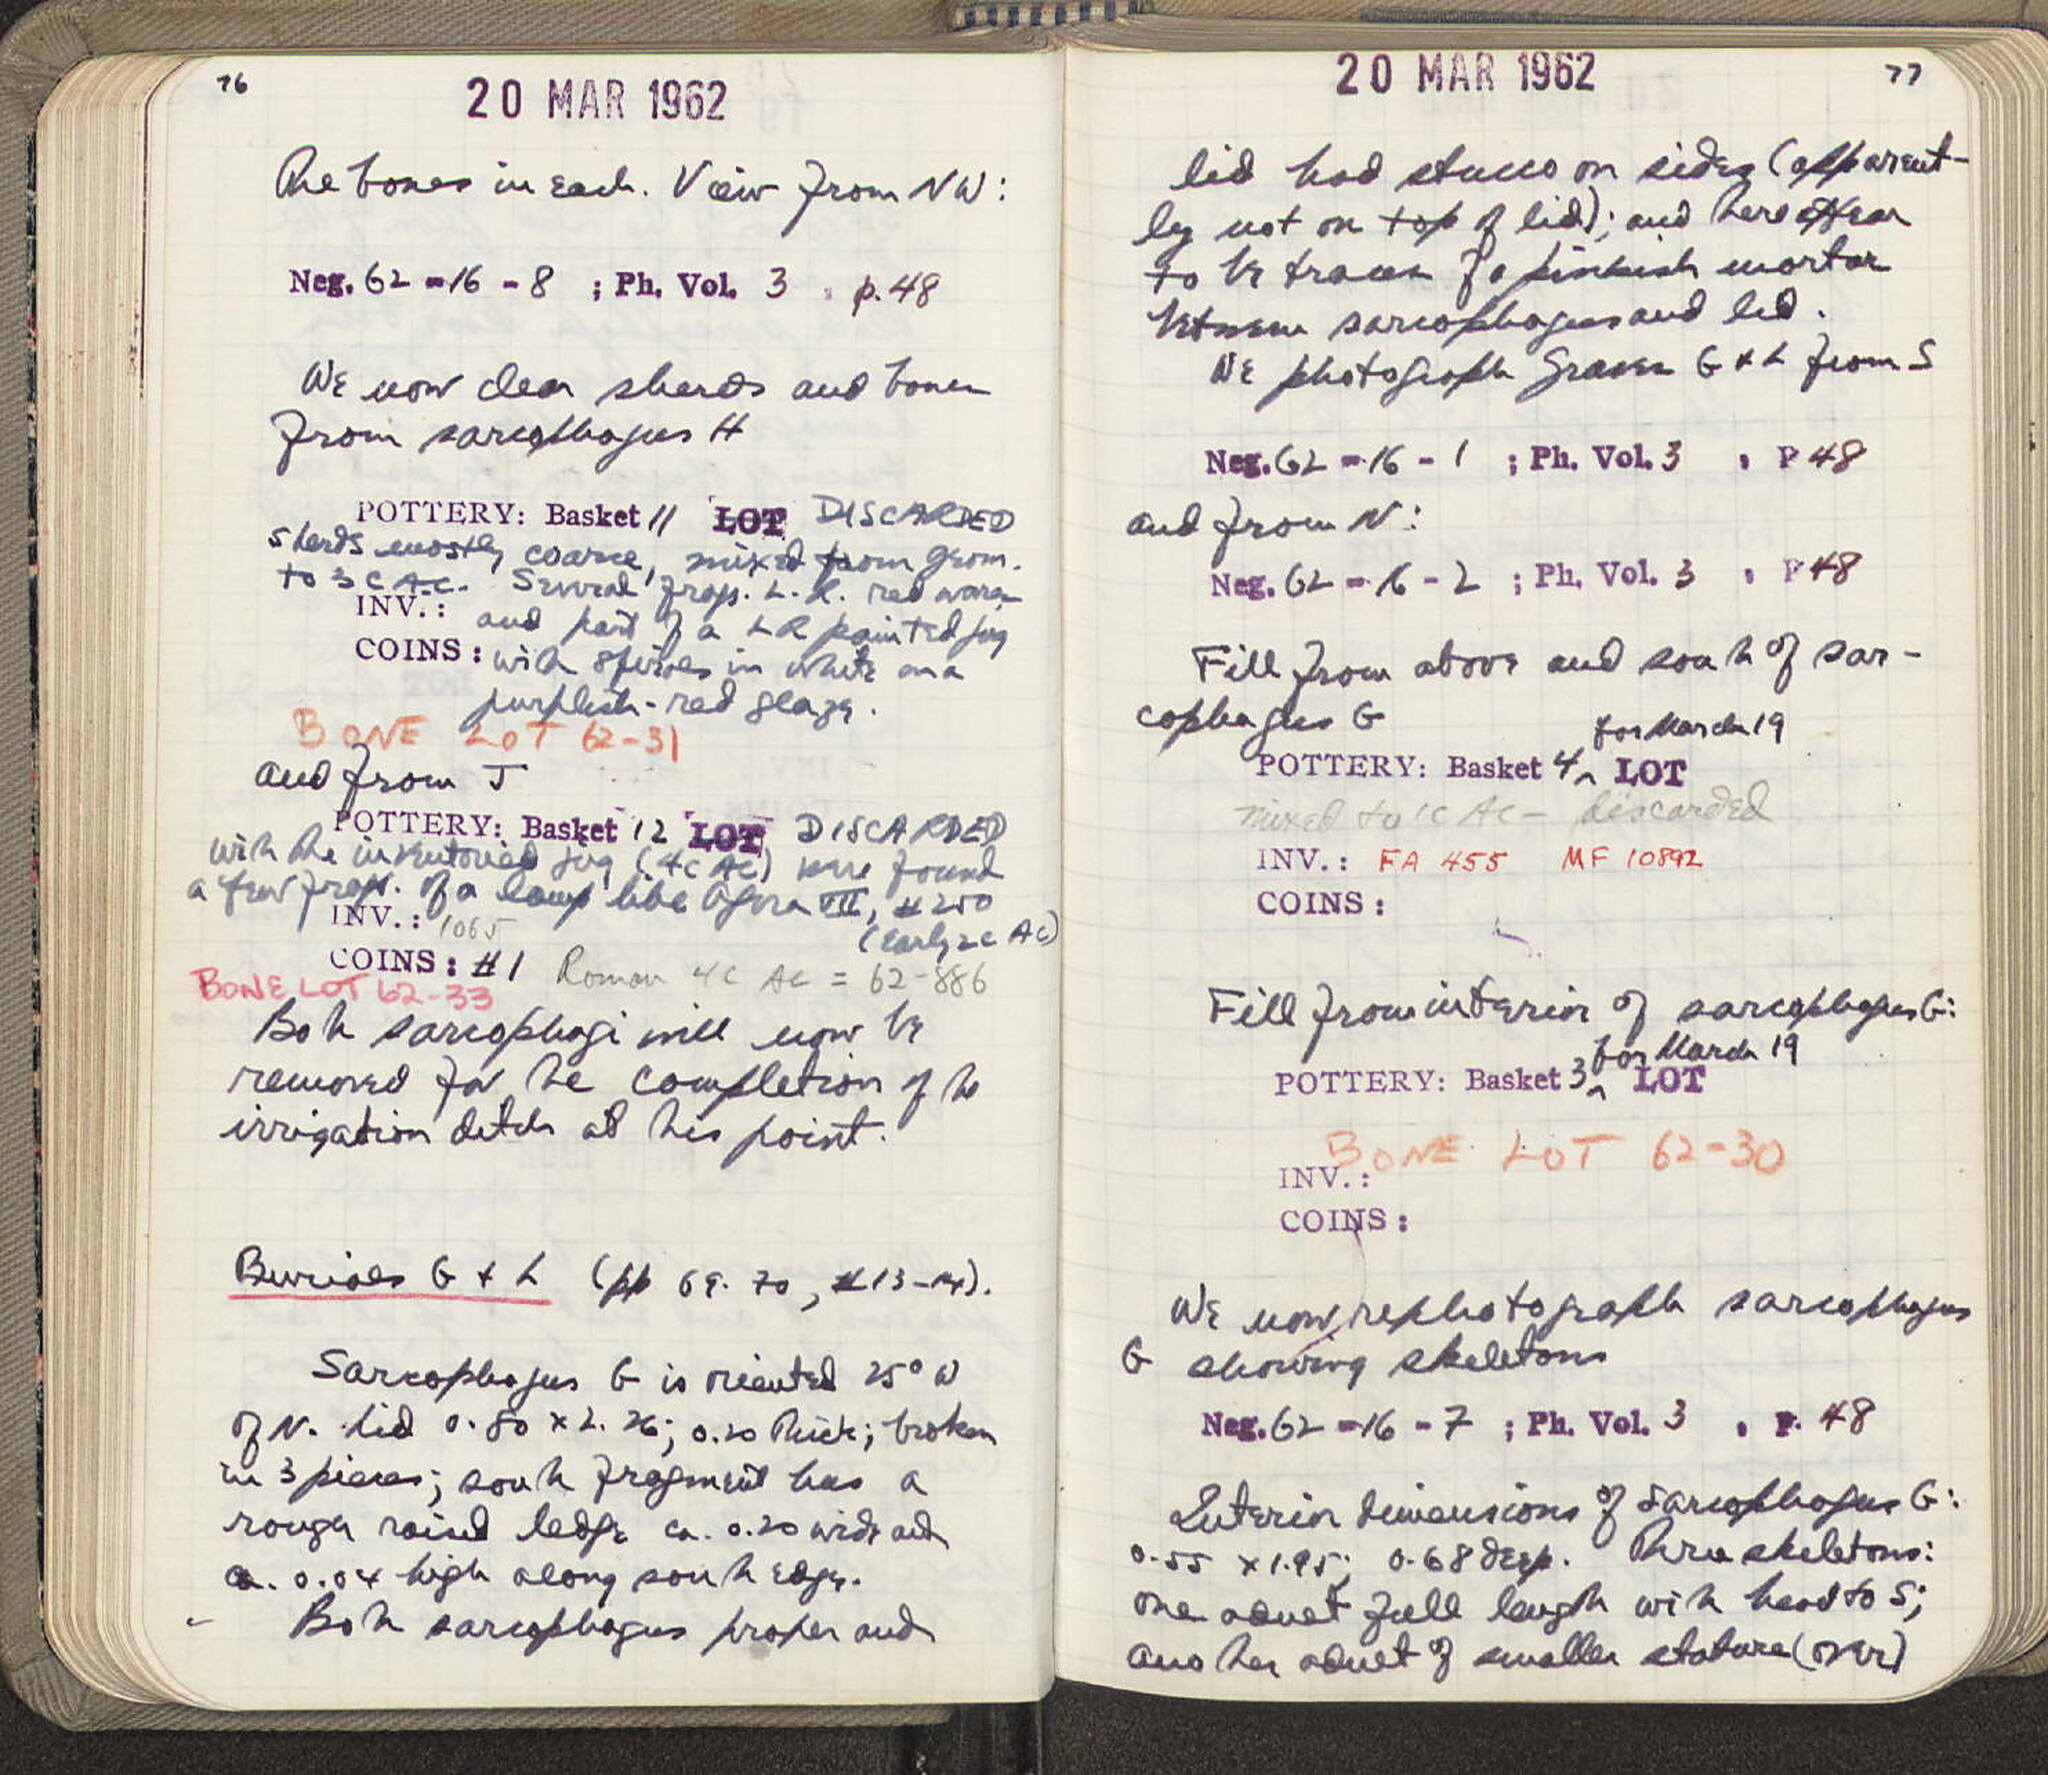 76
20 MAR 1962
the bones in each. View from NW:
Neg. 62-16-8 ; Ph. Vol. 3 , p. 48
We now clear sherds and bones
from sarcophagus H
POTTERY: Basket 11 LOT DISCARDED
sherds mostly coarse, mixed from geom.
to 3 C A.C. Several frags. L.R. red ware
INV.:
and part of a LR painted jug
COINS:
with spirals in white on a
purplish-red glaze.
BONE LOT 62-31
and from J
POTTERY: Basket 12 LOT DISCARDED
With the inventoried jug (4C AC) were found
a few frags. of a lamp like Agora VII, #250
INV.: 1065
(early 2C AC)
COINS: #1 Roman 4C AC = 62-886
BONE LOT 62-33
Both sarcophagi will now be
removed for the completion of the
irrigation ditch at this point.
Burials G & L (pp 69-70, #13-14).
Sarcophagus G is oriented 25° W
of N. Lid 0.80 x 2.26; 0.20 thick; broken
in 3 pieces; south fragment has a
rough raised ledge ca. 0.20 wide and
ca. 0.04 high along south edge.
Both sarcophagus proper and
20 MAR 1962
77
lid had stucco on sides (apparent-
ly not on top of lid); and there appear
to be traces of a pinkish mortar
between sarcophagus and lid.
We photograph Graves G & L from S
Neg. 62-16-1 ; Ph. Vol. 3 , P 48
and from N:
Neg. 62-16-2 ; Ph. Vol. 3 , P 48
Fill from above and south of sar-
cophagus G
for March 19
POTTERY: Basket 4^ LOT
mixed to 1C AC - discarded
INV.: FA 455 MF 10892
COINS:
Fill from interior of sarcophagus G:
for March 19
POTTERY: Basket 3^ LOT
BONE LOT 62-30
INV.:
COINS:
We now rephotograph sarcophagus
G showing skeletons
Neg. 62-16-7 ; Ph. Vol. 3 , p. 48
Interior dimensions of sarcophagus G:
0.55 x 1.95; 0.68 deep. Three skeletons:
one adult full length with head to S;
another adult of smaller stature (over)